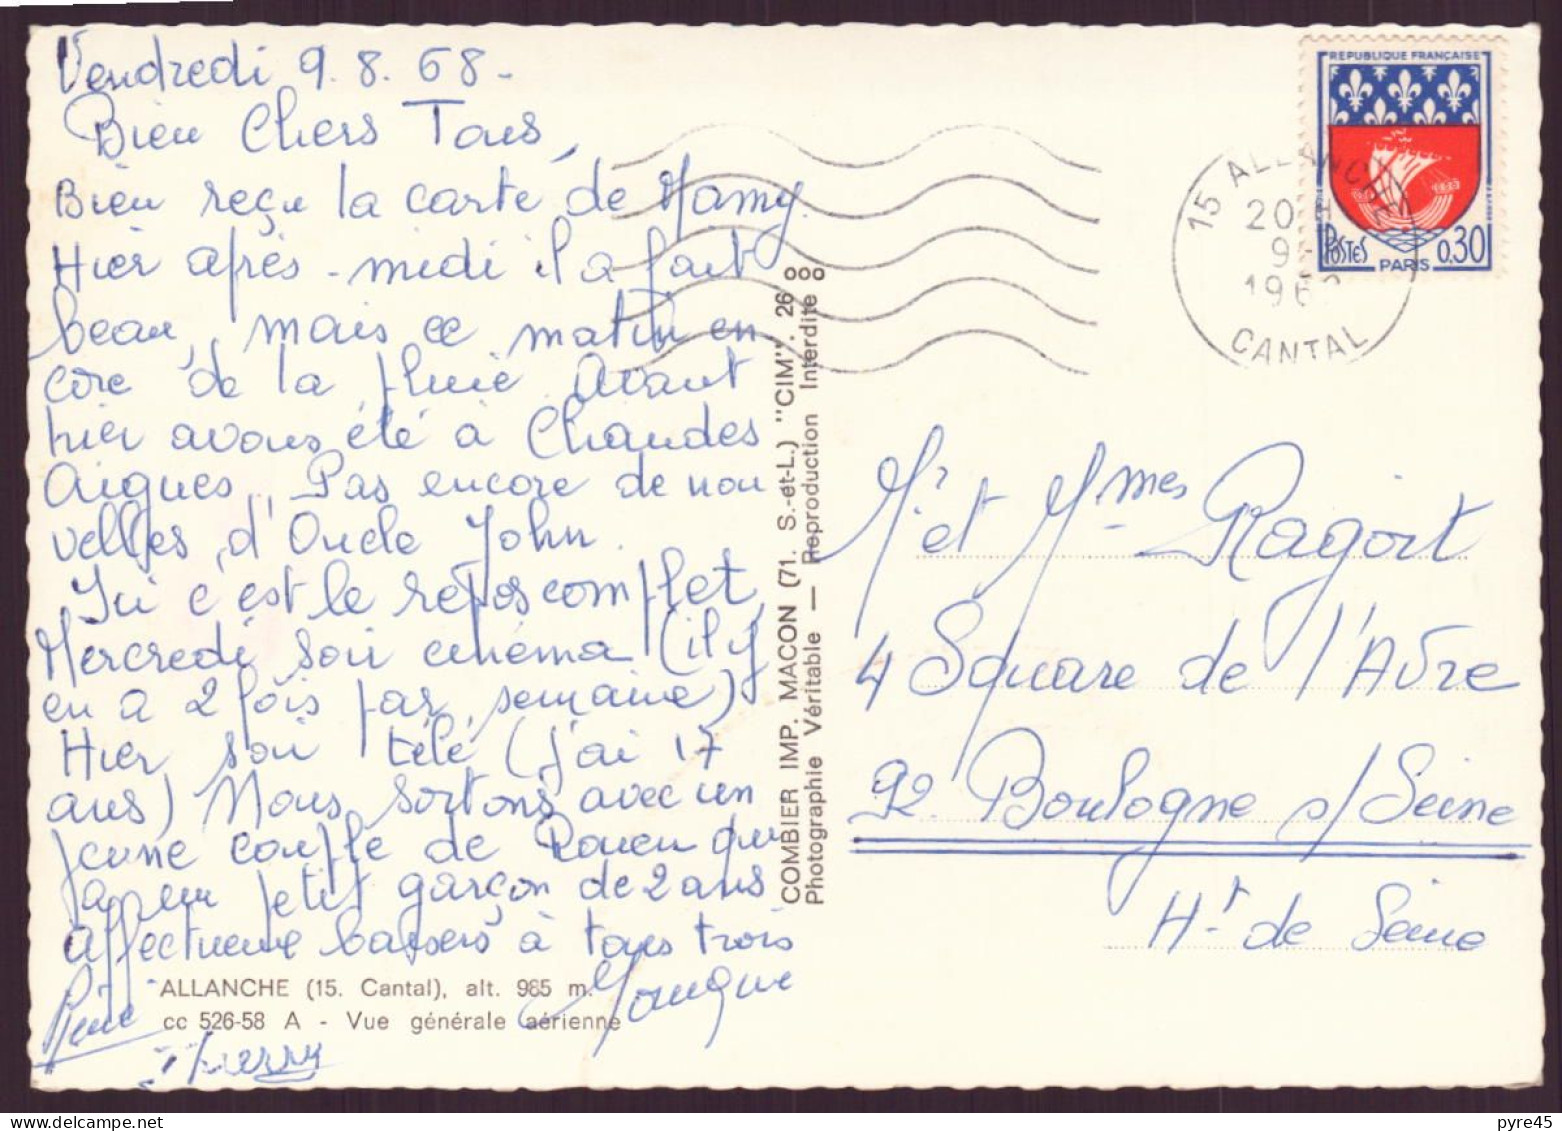 Vendredi 9.8.68-
Bien Chers Tous,
Bien reçu la carte de Mamy.
Hier après-midi il a fait
beau, mais ce matin en
core de la pluie Avant
hier avons été à Chaudes
Aigues. Pas encore de nou
velles d'Oncle John.
Ici c'est le repos complet,
Mercredi soir cinéma (il y
en a 2 fois par semaine)
Hier soir télé (j'ai 17
ans) Nous sortons avec un
jeune couple de Rouen qui
a un petit garçon de 2 ans
affectueux baisers à tous trois
Monique
Thierry
ALLANCHE (15. Cantal), alt. 985 m.
cc 526-58 A - Vue générale aérienne
COMBIER IMP. MACON (71. S.-et-L.) "CIM". 26
Photographie Véritable — Reproduction Interdite
REPUBLIQUE FRANÇAISE
POSTES
PARIS
0,30
15 ALLANCHE
20 H
9
196
CANTAL
Mr et Mmes Ragot
4 Square de l'Avre
92 Boulogne s/Seine
Ht de Seine
pyre45